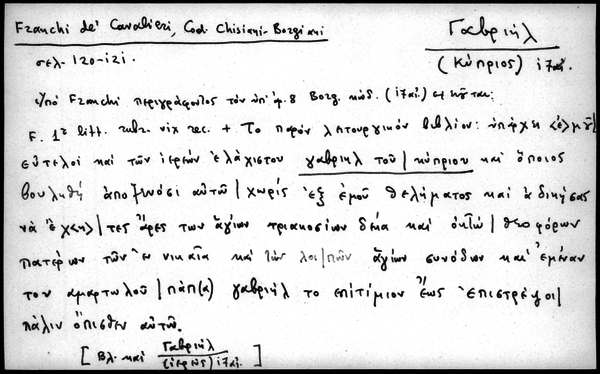 Franchi de' Cavalieri, Cod. Chisiani-Borgiani
Γαβριήλ
(Κύπριος) ιζ αἰ.
σελ. 120-121.
Ὑπὸ Franchi περιγράφοντος τὸν ὑπ' ἀρ. 8 Borg. κώδ. (ιζ αἰ.)
F. 1r litt. rubr. vix rec. + Το παρόν λητουργικόν βιβλίον: ὑπάρχει
εὐτελοί καὶ τῶν ἱερεών ἐλάχιστου γαβριηλ τοῦ | κύπριου καὶ ὅποιος
βουληθῆ ἀποξινόσι αὐτῶ | χωρίς ἐξ ἐμοῦ θελήματος καὶ ἀδικήσας
νὰ ἔχ<η> | τες ἄρες των ἁγίων τριακοσίων δέκα καὶ ὀκτώ | θεοφόρων
πατερων τῶν ἐν νικαῖα καὶ τῶν λοι|πῶν ἁγίων συνόδων καὶ ἐμέναν
τον αμαρτωλοῦ | πάπ(α) γαβριήλ το ἐπιτίμιον ἕως ἐπιστρέψοι |
πάλιν ὄπισθεν αὐτῶ.
[ Βλ. καὶ Γαβριήλ (ἱερεὺς) ιζ αἰ. ]